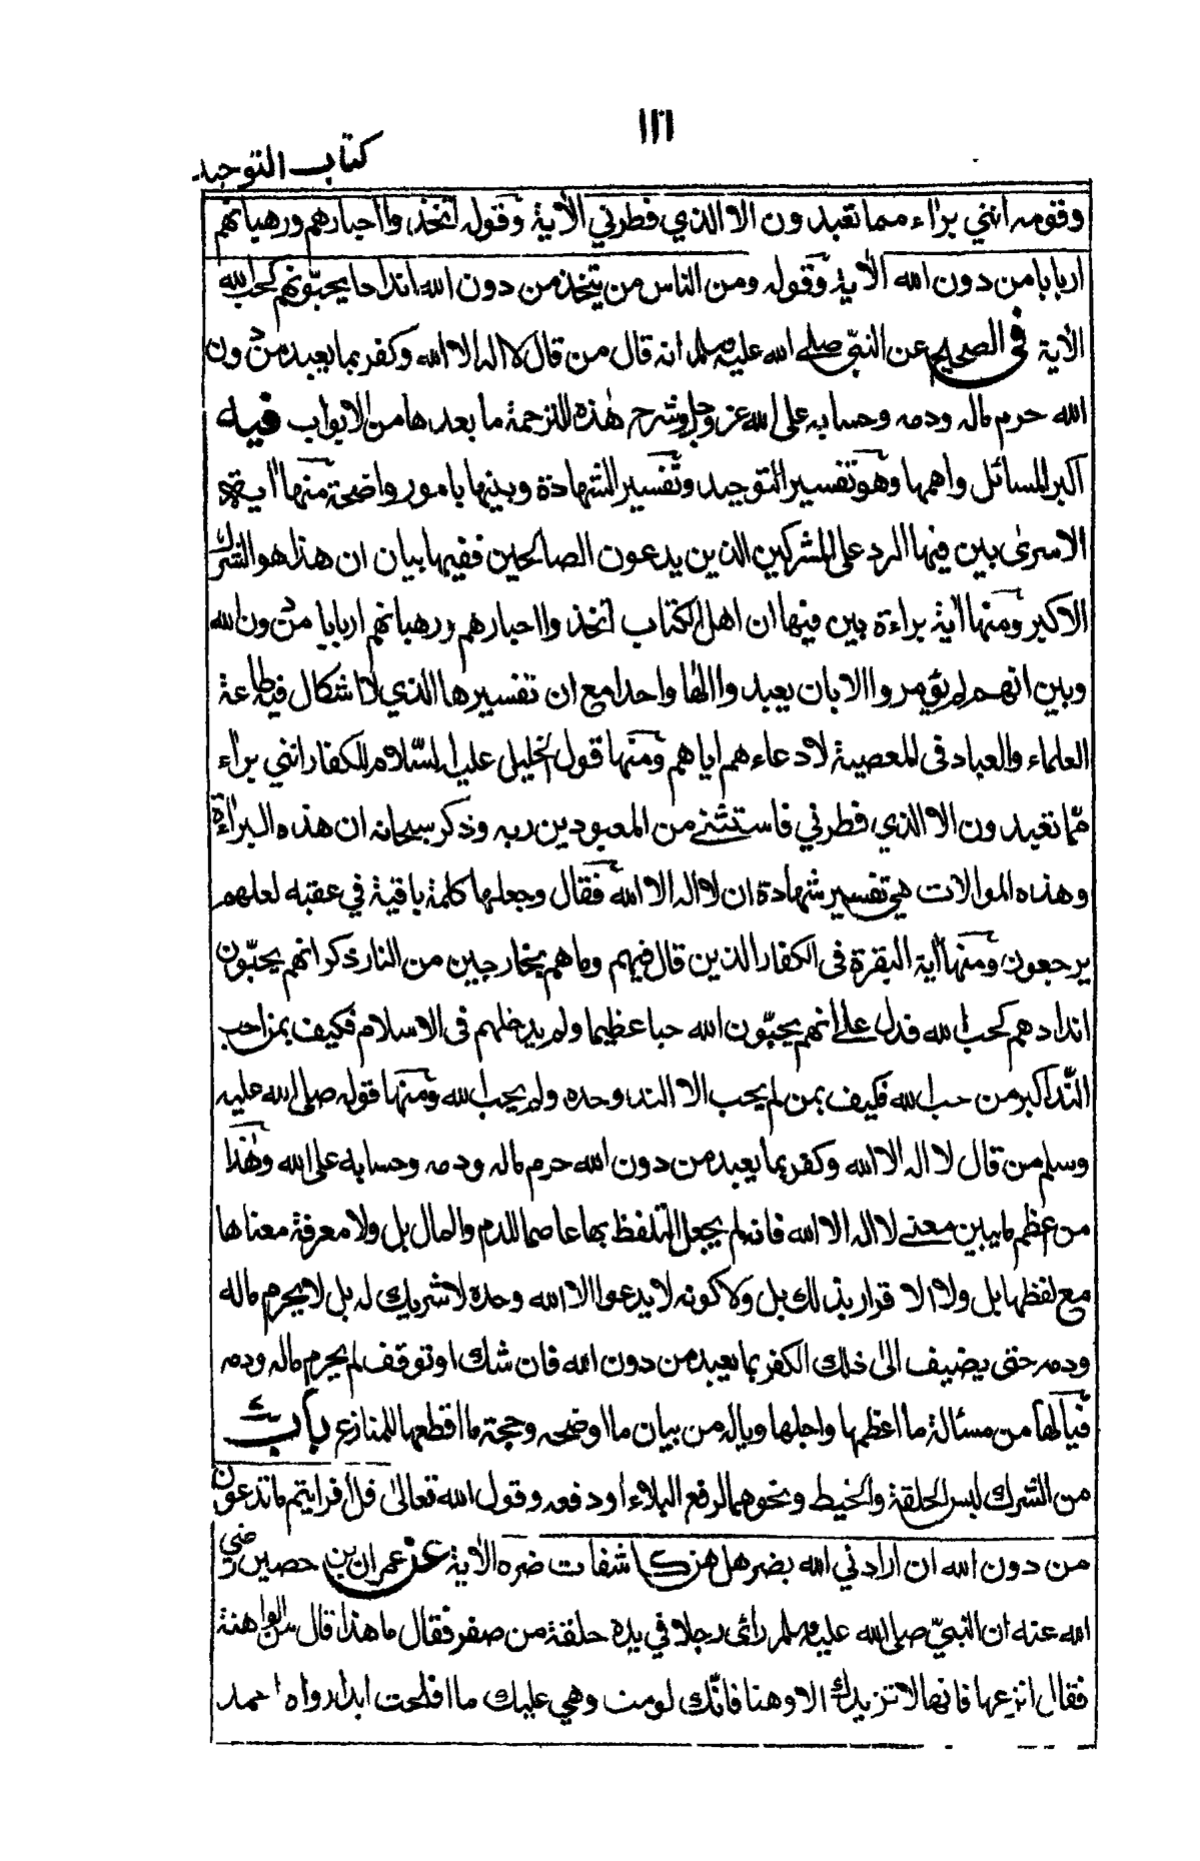 ١٢١
كتاب التوحيد
وقومه انني براء مما تعبدون الا الذي فطرني الآية وقوله اتخذوا احبارهم ورهبانهم
اربابا من دون الله الآية وقوله ومن الناس من يتخذ من دون الله اندادا يحبونهم كحب الله
الآية في الصحيح عن النبيّ صلى الله عليه وسلم انه قال من قال لا اله الا الله وكفر بما يعبد من دون
الله حرم ماله ودمه وحسابه على الله عز وجل وشرح هذه الترجمة ما بعدها من الابواب فيه
اكبر المسائل واهمها وهو تفسير التوحيد وتفسير الشهادة وبينها بامور واضحة منها آية
الاسرى بين فيها الرد على المشركين الذين يدعون الصالحين ففيها بيان ان هذا هو الشرك
الاكبر ومنها آية براءة بين فيها ان اهل الكتاب اتخذوا احبارهم ورهبانهم اربابا من دون الله
وبين انهم لم يؤمروا الا بان يعبدوا الها واحدا مع ان تفسيرها الذي لا اشكال فيه طاعة
العلماء والعباد في المعصية لا دعاءهم اياهم ومنها قول الخليل عليه السّلام للكفار انني براء
ممّا تعبدون الا الذي فطرني فاستثنى من المعبودين ربه وذكر سبحانه ان هذه البراءة
وهذه الموالات هي تفسير شهادة ان لا اله الا الله فقال وجعلها كلمة باقية في عقبه لعلهم
يرجعون ومنها آية البقرة في الكفار الذين قال فيهم وما هم بخارجين من النار ذكر انهم يحبّون
اندادهم كحب الله فدل على انهم يحبّون الله حبا عظيما ولم يدخلهم في الاسلام فكيف بمن احب
النّد اكبر من حب الله فكيف بمن لم يحب الا الند وحده ولم يحب الله ومنها قوله صلى الله عليه
وسلم من قال لا اله الا الله وكفر بما يعبد من دون الله حرم ماله ودمه وحسابه على الله وهذا
من عظم ما يبين معنى لا اله الا الله فانه لم يجعل التلفظ بها عاصما للدم والمال بل ولا معرفة معناها
مع لفظها بل ولا الاقرار بذلك بل ولا كونه لا يدعوا الا الله وحده لا شريك له بل لا يحرم ماله
ودمه حتى يضيف الى ذلك الكفر بما يعبد من دون الله فان شك او توقف لم يحرم ماله ودمه
فيالها من مسئالة ما اعظمها واجلها وياله من بيان ما اوضحه وحجة ما اقطعها للمنازع باب
من الشرك لبس الحلقة والخيط ونحوهما لرفع البلاء او دفعه وقول الله تعالى قل افرايتم ما تدعون
من دون الله ان ارادني الله بضر هل هن كاشفات ضره الآية عن عمران بن حصين رضي
الله عنه ان النبيّ صلى الله عليه وسلم رآى رجلا في يده حلقة من صفر فقال ما هذا قال من الواهنة
فقال انزعها فانها لا تزيدك الا وهنا فانّك لو مت وهي عليك ما افلحت ابدا رواه احمد